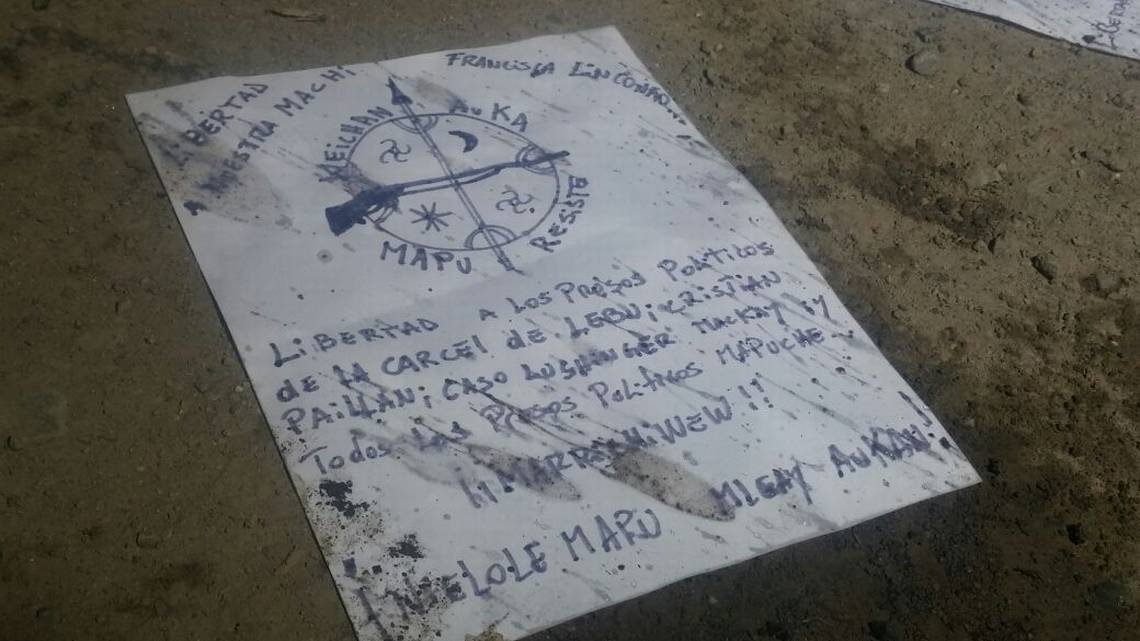 LIBERTAD
A NUESTRA MACHI
FRANCISCA LINCONAO...
WEICHAN AUKA
MAPU RESISTE
LIBERTAD A LOS PRESOS POLITICOS
DE LA CARCEL DE LEBU; CRISTIAN
PAILLAN; CASO LUSHINGER MACKAY; Y
TODOS LOS PRESOS POLITICOS MAPUCHE...
¡¡MARRICHIWEW!!
MAPU MLEAY AUKAN!